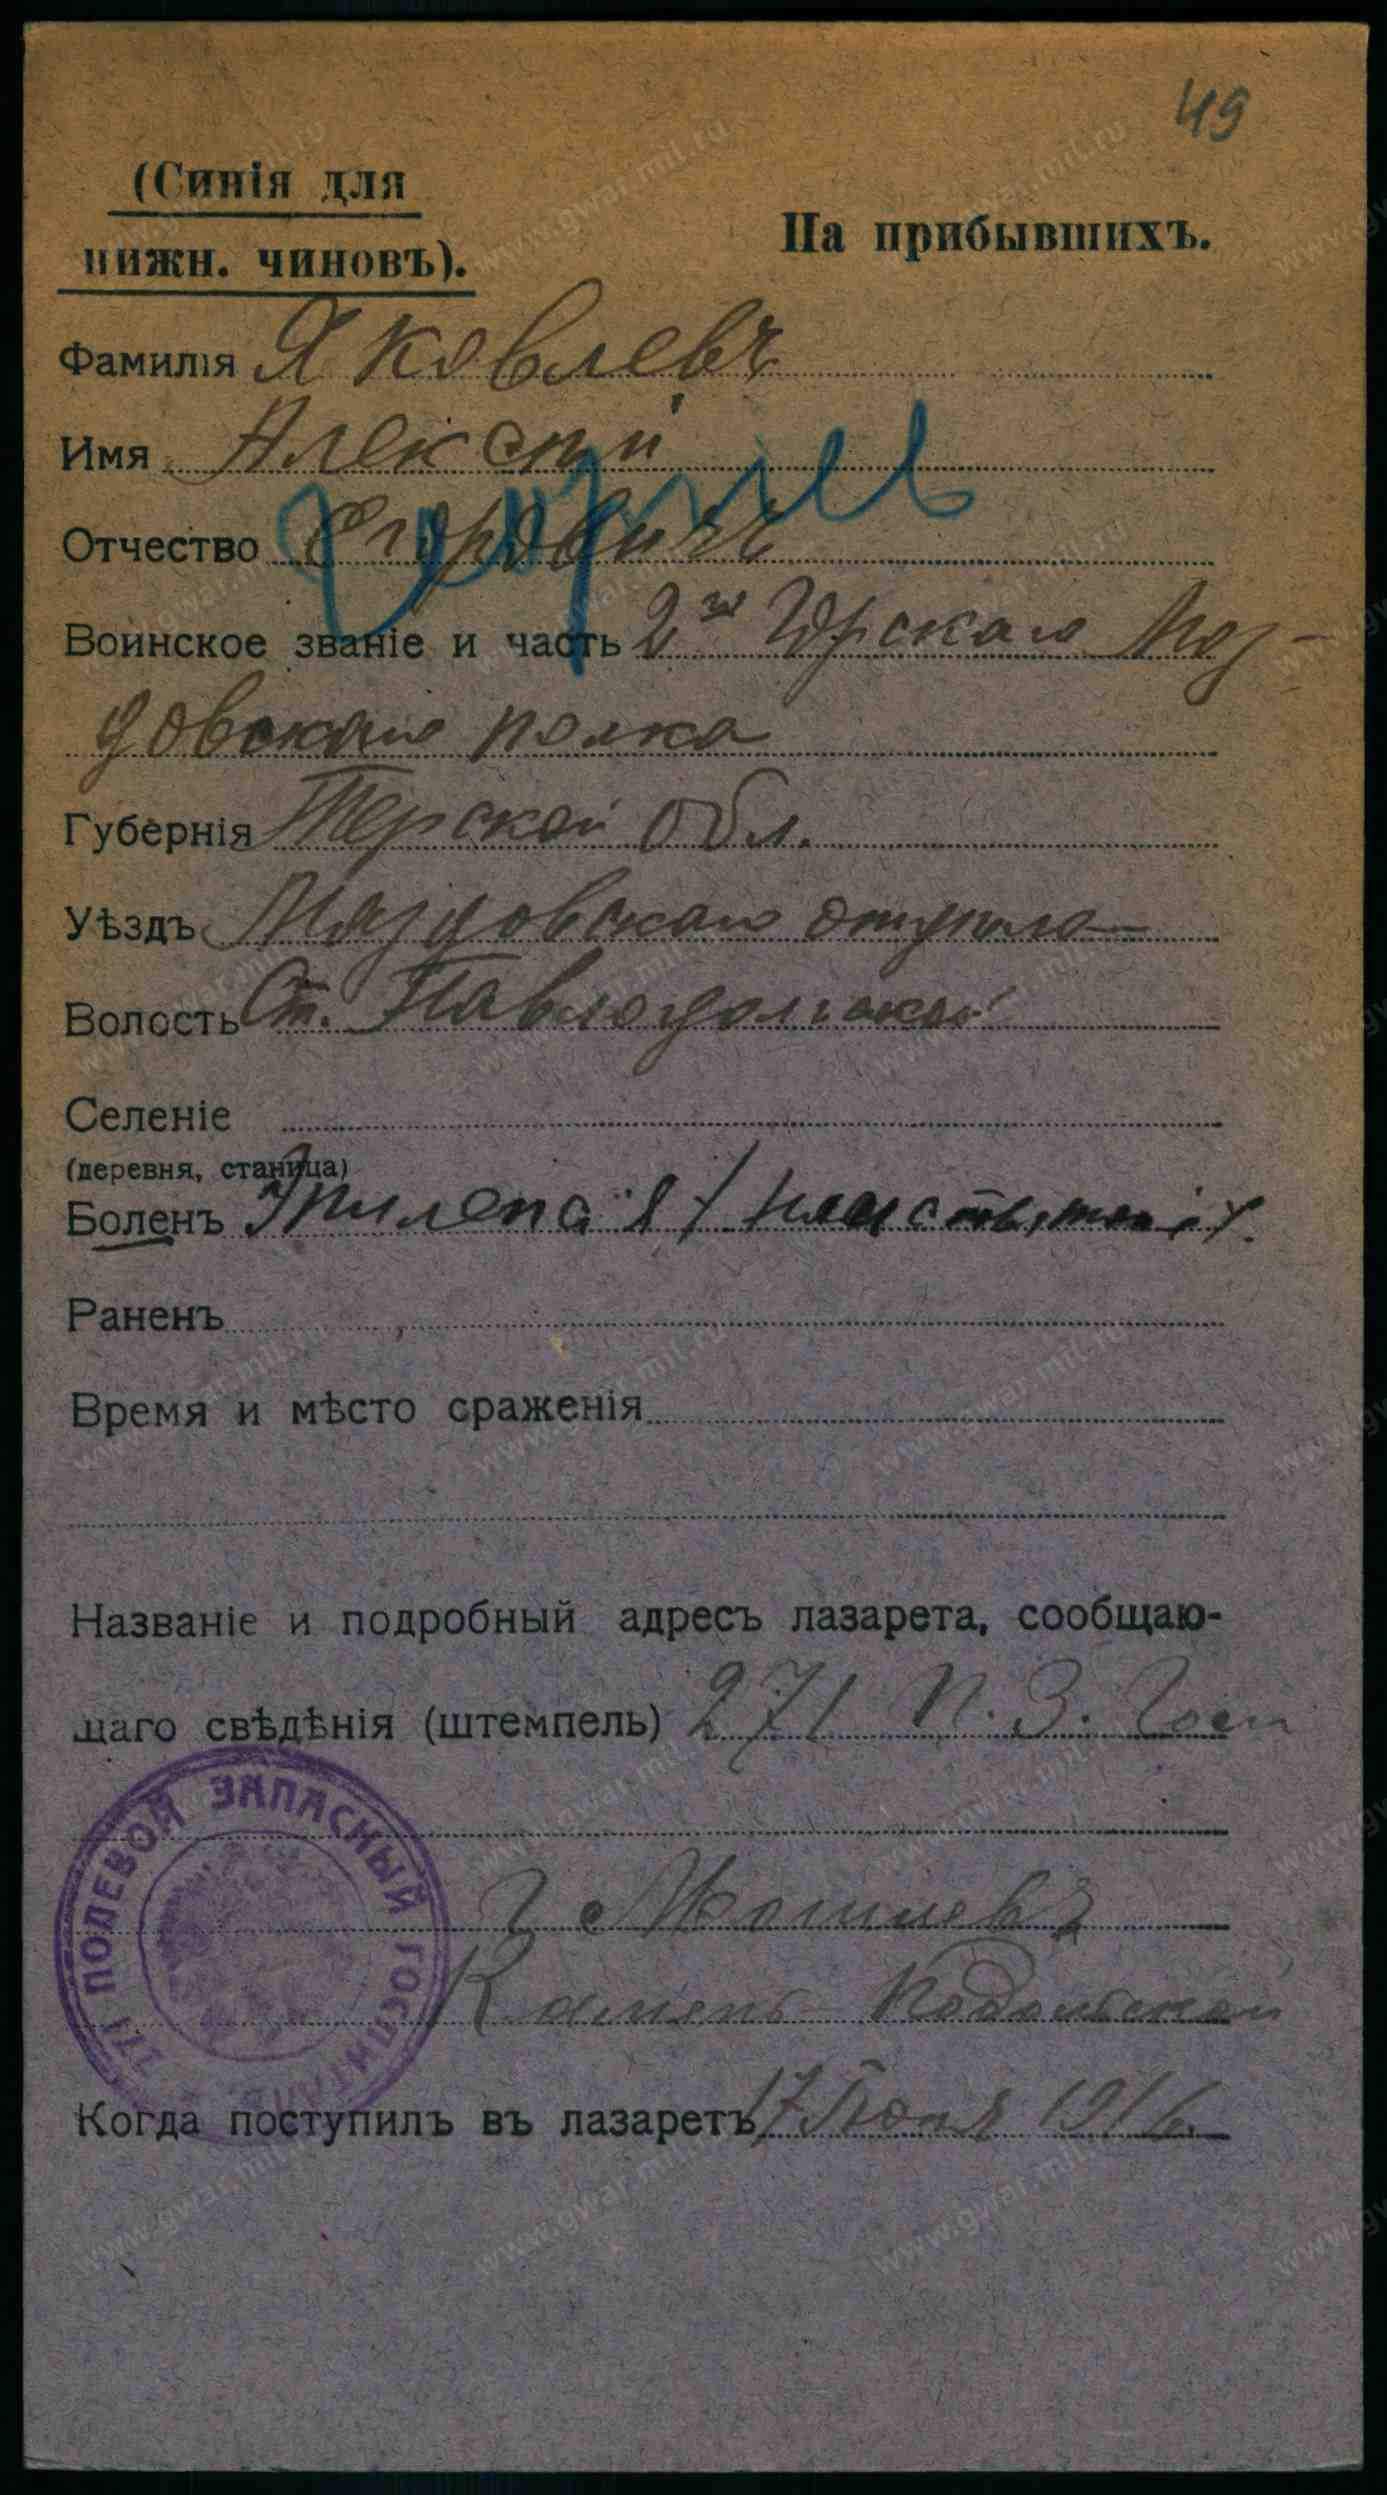 49
(Синія для
нижн. чиновъ).
На прибывшихъ.
Фамилія Яковлевъ
Имя Алексѣй
Отчество Егоровичъ
Воинское званіе и часть 2го Горскаго Моз-
довскаго полка
Губернія Терской Обл.
Уѣздъ Моздовскаго отдѣла
Волость Ст. Павлодольской
Селеніе
(деревня, станица)
Боленъ Эпилепсія
Раненъ
Время и мѣсто сраженія
Названіе и подробный адресъ лазарета, сообщаю-
щаго свѣдѣнія (штемпель) 271 П. З. Госп
271 ПОЛЕВОЙ ЗАПАСНЫЙ ГОСПИТАЛЬ
Г Могилевъ
Камень Подольской
Когда поступилъ въ лазаретъ 17 Іюля 1916